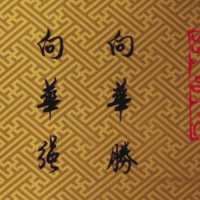 向華勝
向華强